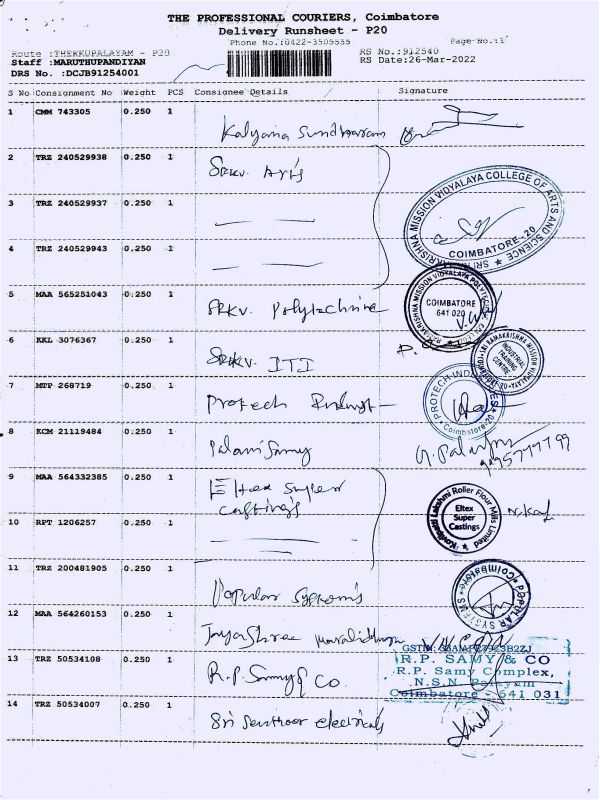 THE PROFESSIONAL COURIERS, Coimbatore
Delivery Runsheet - P20
Phone No.:0422-3505555 Page No.:1
Route :THEKKUPALAYAM - P20 RS No.:912540
Staff :MARUTHUPANDIYAN RS Date:26-Mar-2022
DRS No. :DCJB91254001
S No Consignment No Weight PCS Consignee Details Signature
1 CMM 743305 0.250 1
Kalyana Sundharam
2 TRZ 240529938 0.250 1 SRKV. Arts
3 TRZ 240529937 0.250 1
SRI RAMAKRISHNA MISSION VIDYALAYA COLLEGE OF ARTS AND SCIENCE
COIMBATORE-20
4 TRZ 240529943 0.250 1
5 MAA 565251043 0.250 1 SRKV. Polytechnic
RAMAKRISHNA MISSION VIDYALAYA POLYTECHNIC
COIMBATORE
641 020
6 KKL 3076367 0.250 1 SRKV. ITI
SRI RAMAKRISHNA MISSION VIDYALAYA
INDUSTRIAL
TRAINING
CENTRE
7 MTP 268719 0.250 1 Protech
PROTECH INDUSTRIES
Coimbatore-20
8 KCM 21119484 0.250 1 PalaniSamy
9 MAA 564332385 0.250 1 Eltex Super
Castings
Lakshmi Roller Flour Mills Limited
Eltex
Super
Castings
10 RPT 1206257 0.250 1
11 TRZ 200481905 0.250 1 Popular Systems
POPULAR SYSTEMS Coimbatore
12 MAA 564260153 0.250 1 JayaShree
13 TRZ 50534108 0.250 1 R.P. Samy & Co
R.P. SAMY & CO
R.P. Samy Complex,
N.S.N. Palayam
Coimbatore - 641 031
14 TRZ 50534007 0.250 1 Sri Senthoor electricals